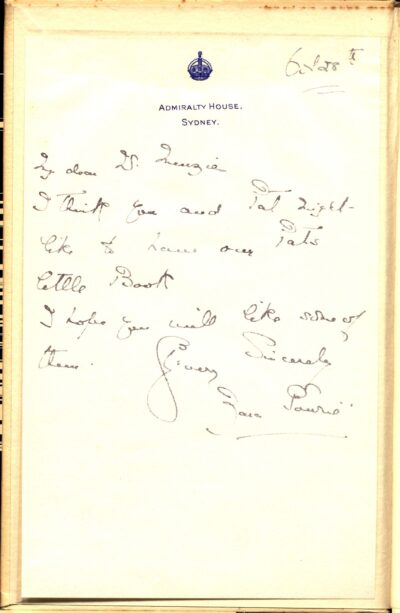 28th
ADMIRALTY HOUSE,
SYDNEY.
My dear Menzies
I think you and Pat might
like to have our Pat's
little Book
I hope you will like some of
them.
Yours Sincerely
Zara Gowrie